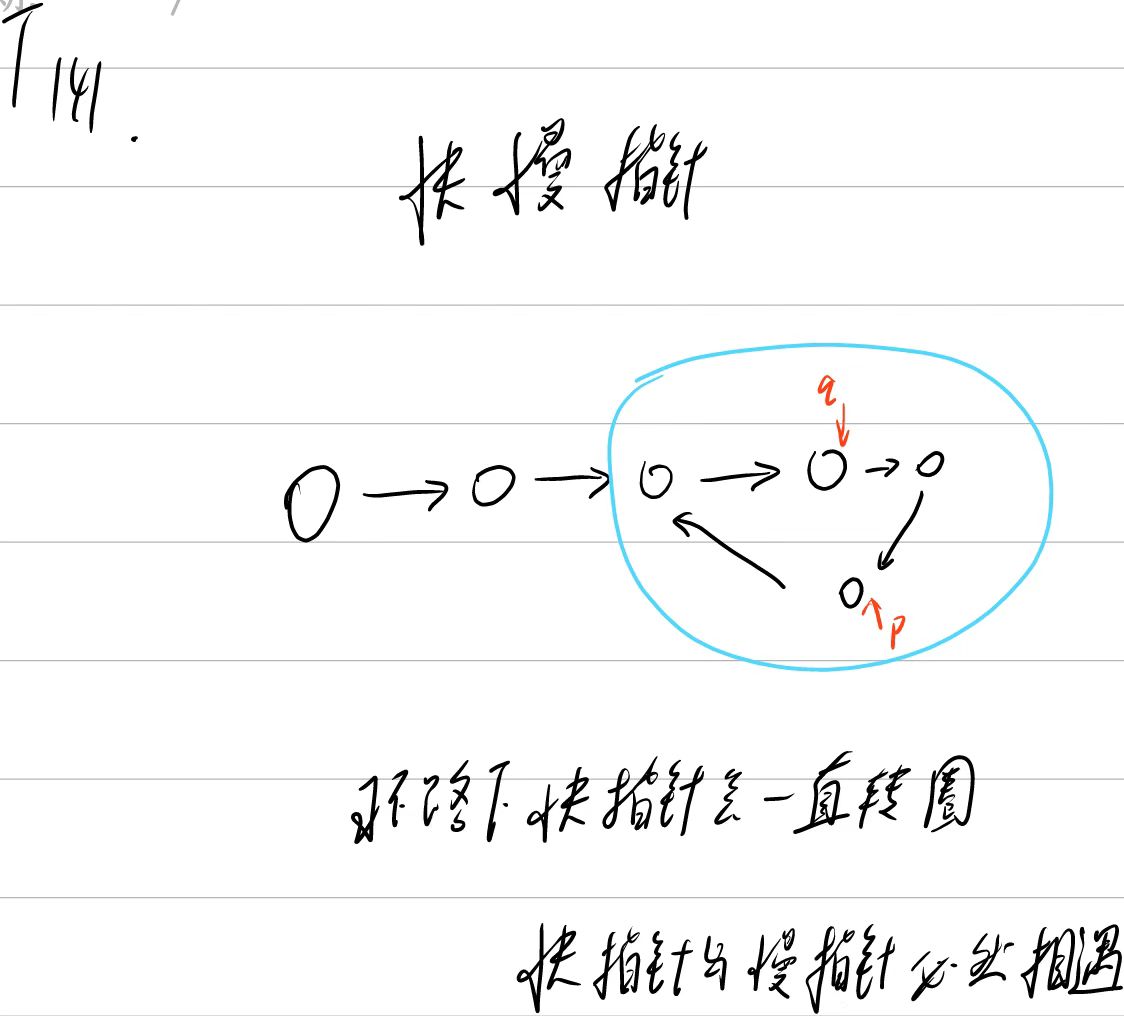 T141.
快慢指针
q
p
环路下快指针会一直转圈
快指针与慢指针必然相遇